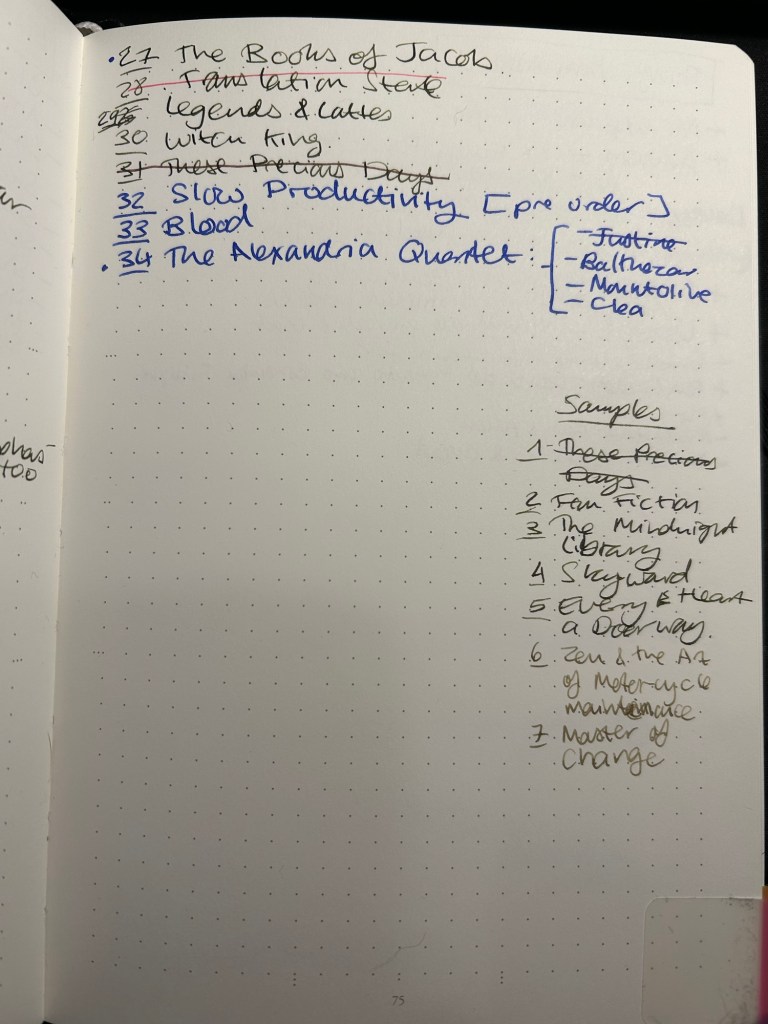 27 The Books of Jacob
28 Translation State
29 Legends & Lattes
30 Witch King
31 These Precious Days
32 Slow Productivity [pre order]
33 Blood
34 The Alexandria Quartet: - Justine
- Balthazar
- Mountolive
- Clea
Samples
1 These Precious
Days
2 Fan Fiction
3 The Midnight
Library
4 Skyward
5 Every Heart
a Doorway.
6 Zen & the Art
of Motor-cycle
maintenance
7 Master of
Change
too
75